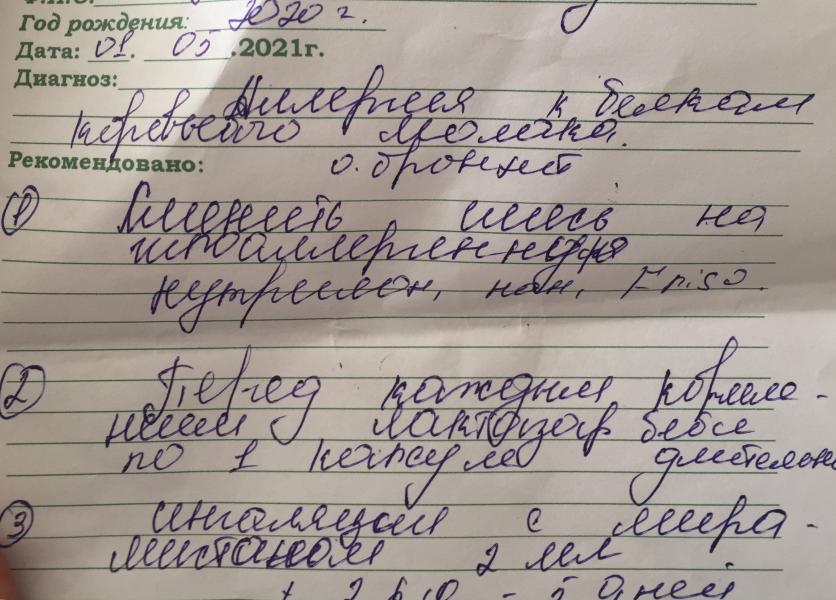 Год рождения: 2020 г.
Дата: 01. 05 .2021г.
Диагноз:
Аллергия к белкам
коровьего молока.
Рекомендовано: о. бронхит
① Сменить смесь на
гипоаллергенную
нутрилон, нан, Friso.
② Перед каждым кормле-
нием лактазар беби
по 1 капсуле длительно
③ ингаляции с мира-
мистином 2 мл
- 5 дней